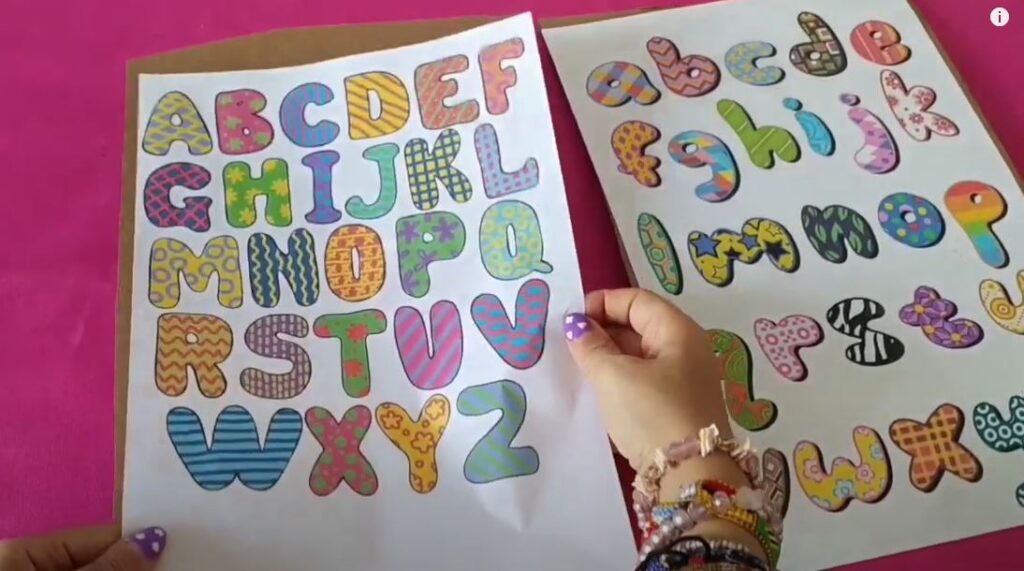 A B C D E F
G H I J K L
M N O P Q
R S T U V
W X Y Z
a b c d e
f g h i j k
l m n o p
q r s t u
w x y